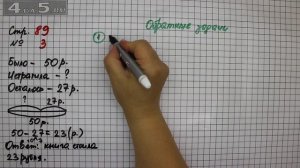 4 на 5.ru
Стр. 89
№ 3
Обратные задачи
①
Было - 50р.
Истратила - ?
Осталось - 27р.
? 27р.
50р.
50-27=23(р.)
Ответ: книга стоила
23 рубля.